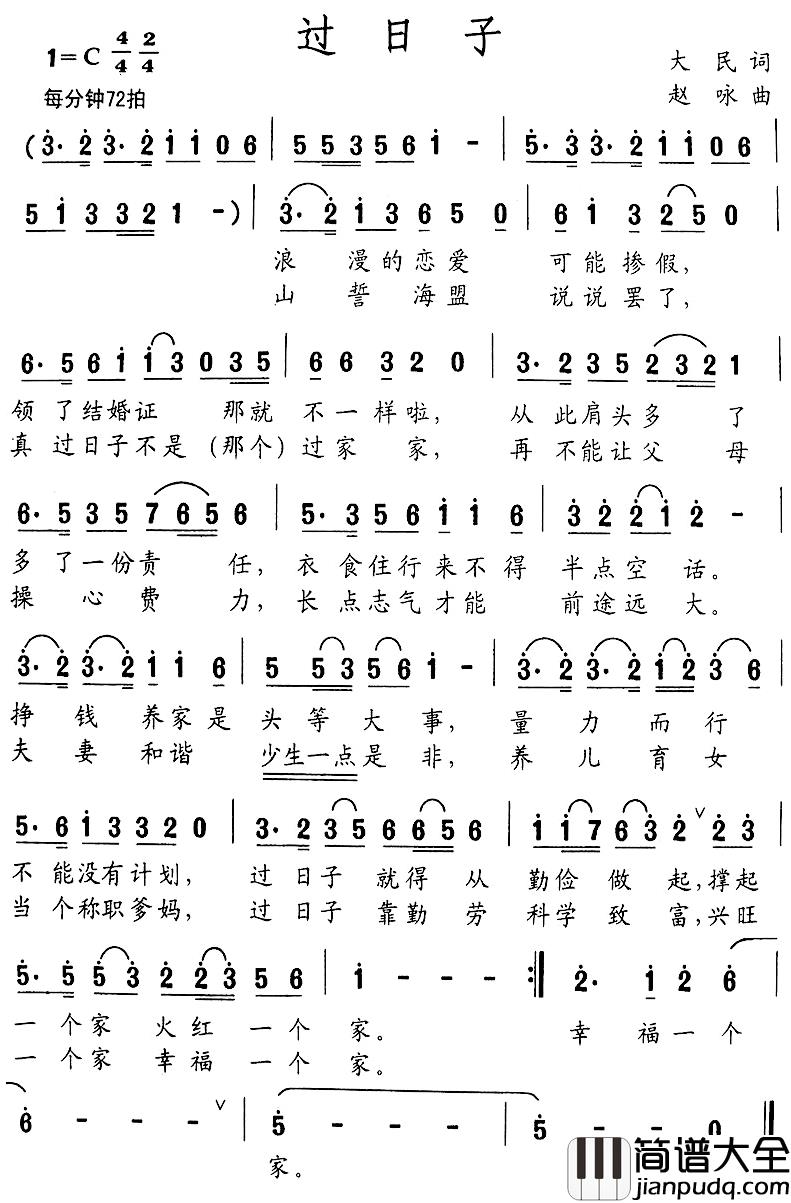 过日子
1=C 4/4 2/4
大民词
每分钟72拍
赵咏曲
(3·2 3·2 1 1 0 6 | 5 5 3 5 6 1 - | 5·3 3·2 1 1 0 6 |
5 1 3 3 2 1 -) | 3·2 1 3 6 5 0 | 6 1 3 2 5 0 |
浪漫的恋爱 可能掺假,
山誓海盟 说说罢了,
6·5 6 1 1 3 0 3 5 | 6 6 3 2 0 | 3·2 3 5 2 3 2 1 |
领了结婚证 那就不一样啦, 从此肩头多了
真过日子不是(那个)过家家, 再不能让父母
6·5 3 5 7 6 5 6 | 5·3 5 6 1 1 6 | 3 2 2 1 2 - |
多了一份责任, 衣食住行来不得 半点空话。
操心费力, 长点志气才能 前途远大。
3·2 3·2 1 1 6 | 5 5 3 5 6 1 - | 3·2 3·2 1 2 3 6 |
挣钱养家是 头等大事, 量力而行
夫妻和谐 少生一点是非, 养儿育女
5·6 1 3 3 2 0 | 3·2 3 5 6 6 5 6 | 1 1 7 6 3 2 ∨ 2 3 |
不能没有计划, 过日子就得从 勤俭做起,撑起
当个称职爹妈, 过日子靠勤劳 科学致富,兴旺
5·5 5 3 2 2 3 5 6 | 1 - - - :‖ 2· 1 2 6 |
一个家火红一个 家。 幸福一个
一个家幸福一个 家。
6 - - - ∨ | 5 - - - | 5 - - 0 ‖
家。
简谱大全
jianpudq.com